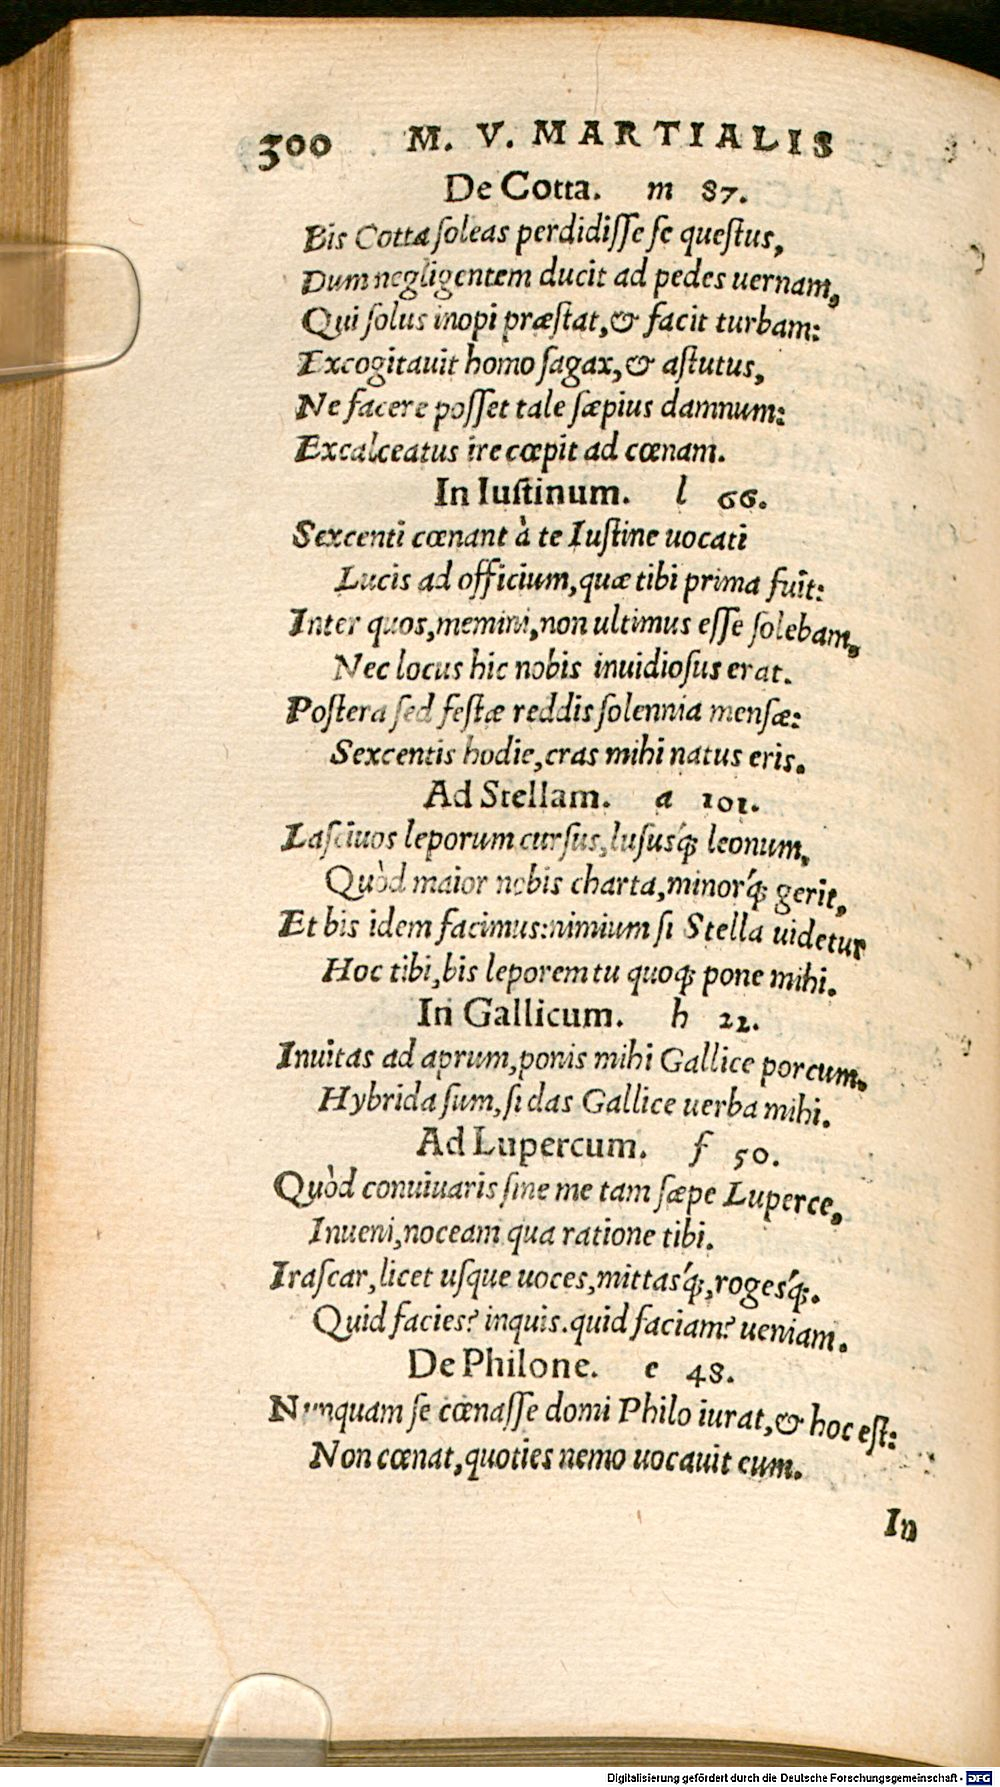 300 M. V. MARTIALIS
De Cotta. m 87.
Bis Cotta ſoleas perdidiſſe ſe queſtus,
Dum negligentem ducit ad pedes uernam,
Qui ſolus inopi præſtat, & facit turbam:
Excogitauit homo ſagax, & aſtutus,
Ne facere poſſet tale ſæpius damnum:
Excalceatus ire cœpit ad cœnam.
In Iuſtinum. l 66.
Sexcenti cœnant à te Iuſtine uocati
Lucis ad officium, quæ tibi prima fuit:
Inter quos, memini, non ultimus eſſe ſolebam,
Nec locus hic nobis inuidioſus erat.
Poſtera ſed feſtæ reddis ſolennia menſæ:
Sexcentis hodie, cras mihi natus eris.
Ad Stellam. a 101.
Laſciuos leporum curſus, luſusq́; leonum,
Quòd maior nobis charta, minorq́; gerit,
Et bis idem facimus: nimium ſi Stella uidetur
Hoc tibi, bis leporem tu quoq; pone mihi.
In Gallicum. h 22.
Inuitas ad aprum, ponis mihi Gallice porcum.
Hybrida ſum, ſi das Gallice uerba mihi.
Ad Lupercum. f 50.
Quòd conuiuaris ſine me tam ſæpe Luperce,
Inueni, noceam qua ratione tibi.
Iraſcar, licet uſque uoces, mittasq́;, rogesq́;.
Quid facies? inquis. quid faciam? ueniam.
De Philone. e 48.
Nunquam ſe cœnaſſe domi Philo iurat, & hoc eſt:
Non cœnat, quoties nemo uocauit eum.
In
Digitalisierung gefördert durch die Deutsche Forschungsgemeinschaft - DFG